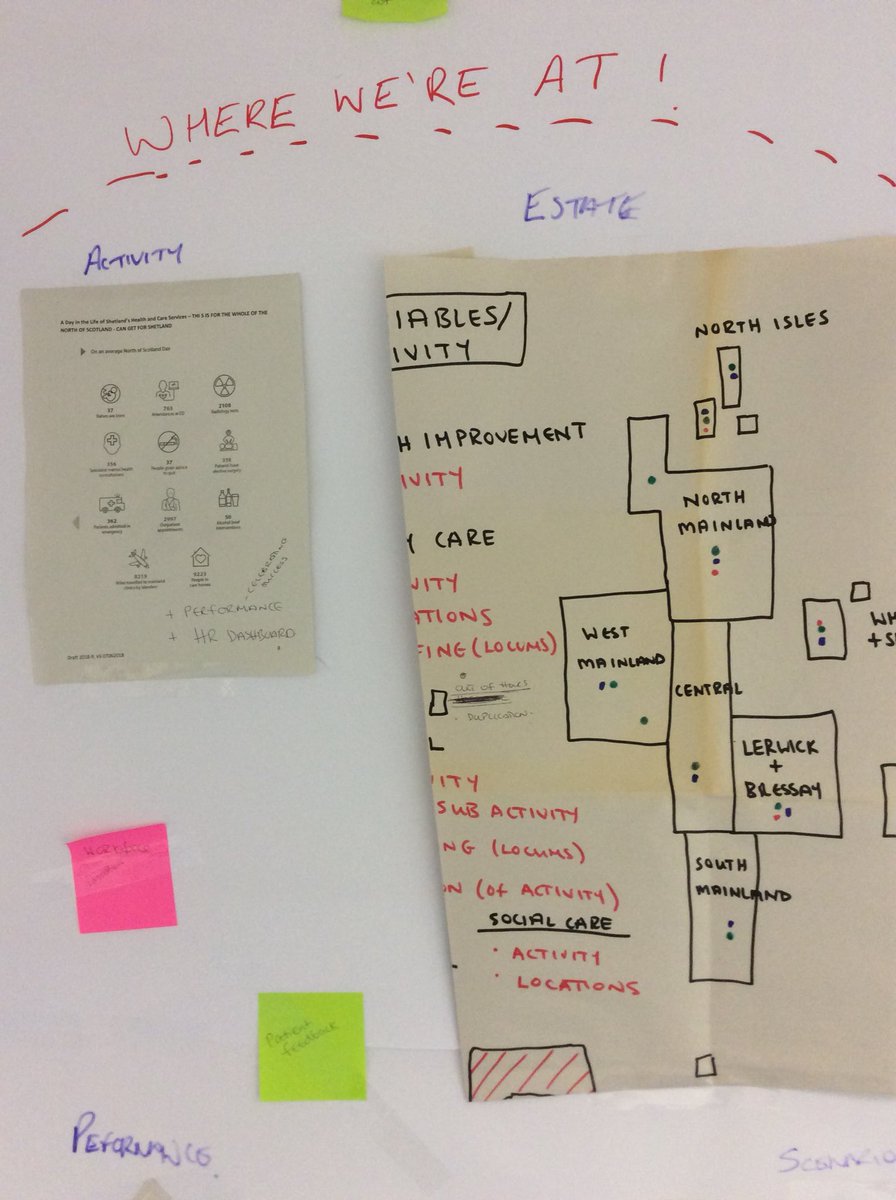 WHERE WE'RE AT!
ESTATE
ACTIVITY
A Day in the Life of Shetland's Health and Care Services – THIS IS FOR THE WHOLE OF THE
NORTH OF SCOTLAND - CAN GET FOR SHETLAND
On an average North of Scotland Day
37
Babies are born
Attendances at ED
2108
Radiology tests
37
People given advice
to quit
elective surgery
362
Patients admitted as
emergency
2997
Outpatient
appointments
50
Alcohol brief
interventions
9223
People in
care homes
- CELEBRATING
SUCCESS
+ PERFORMANCE
+ HR DASHBOARD
IABLES/
IVITY
H IMPROVEMENT
IVITY
Y CARE
IVITY
ATIONS
FINE (LOCUMS)
OUT OF HOURS
- DUPLICATION -
L
IVITY
SUB ACTIVITY
NG (LOCUMS)
ON (OF ACTIVITY)
SOCIAL CARE
· ACTIVITY
· LOCATIONS
NORTH ISLES
NORTH
MAINLAND
WEST
MAINLAND
CENTRAL
WH
+ S
LERWICK
+
BRESSAY
SOUTH
MAINLAND
Workforce
Patient
feedback
PEFORMANCE
SCENARIO